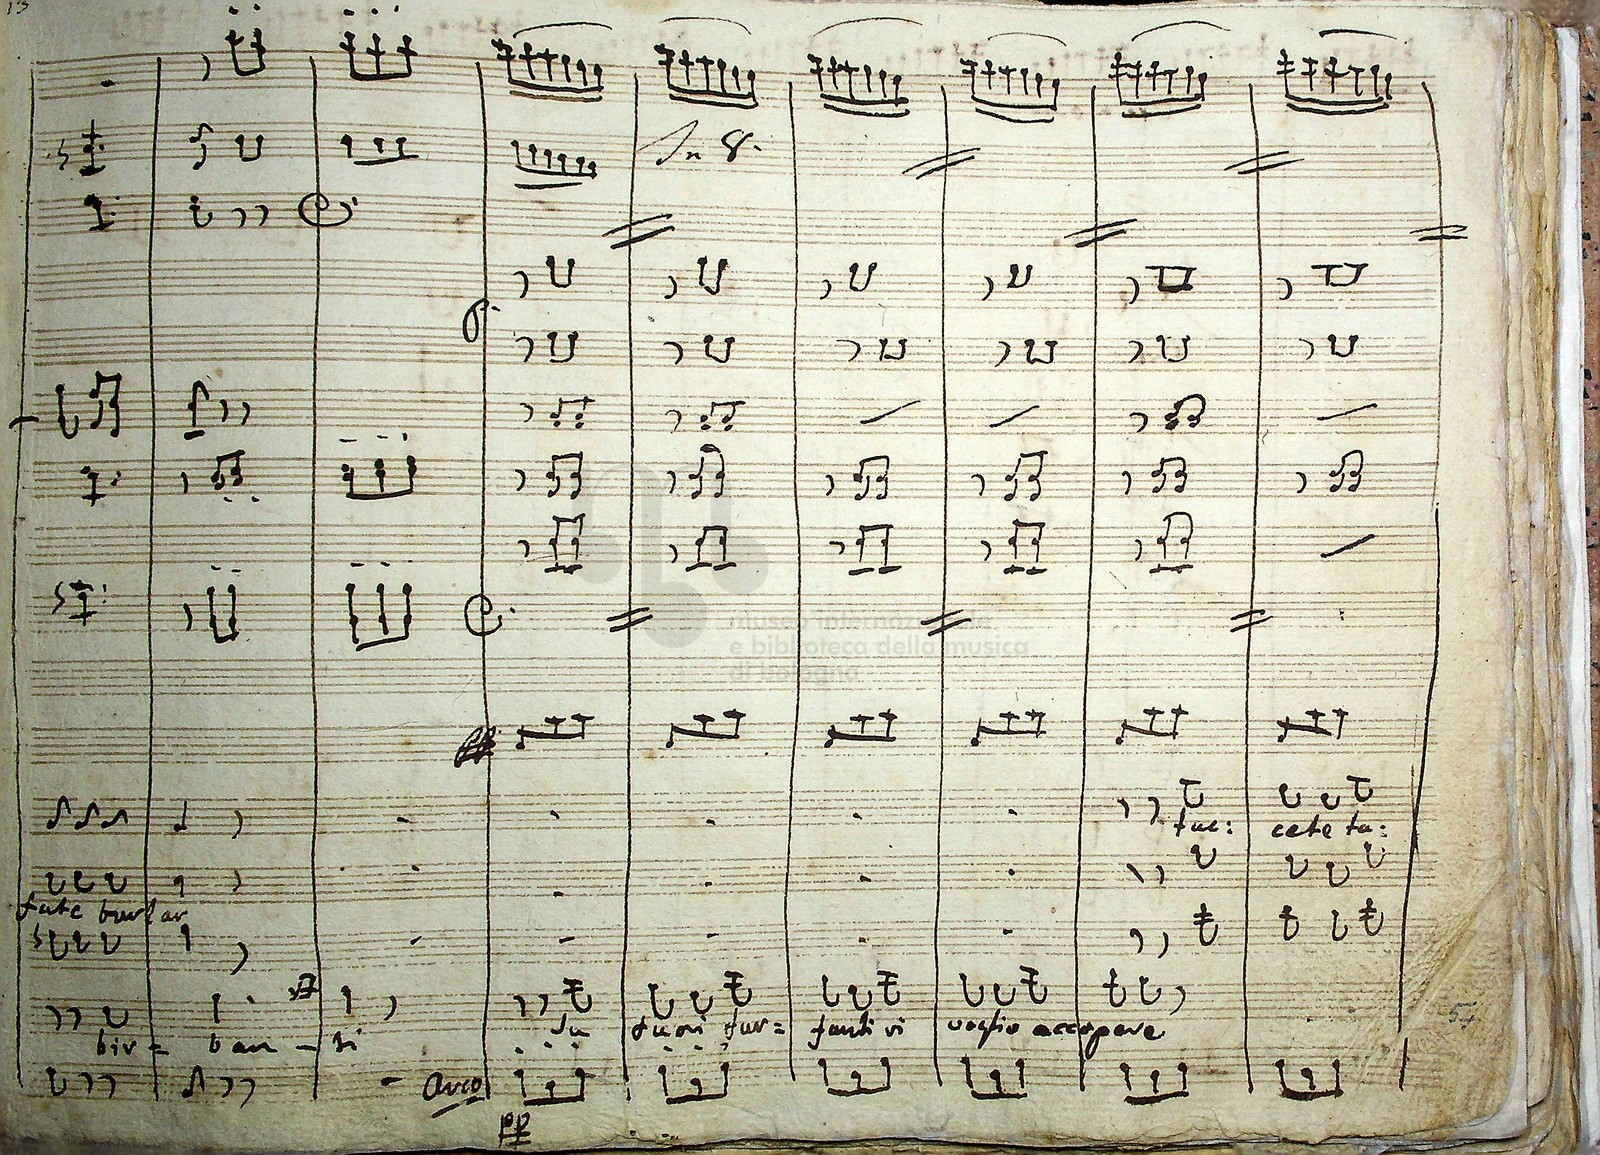 In 8.
museo internazionale
e biblioteca della musica
di bologna
tac: cete ta:
fate burlar
su fuori fur= fanti vi voglio accopare
bir= ban - ti
Arco
pp